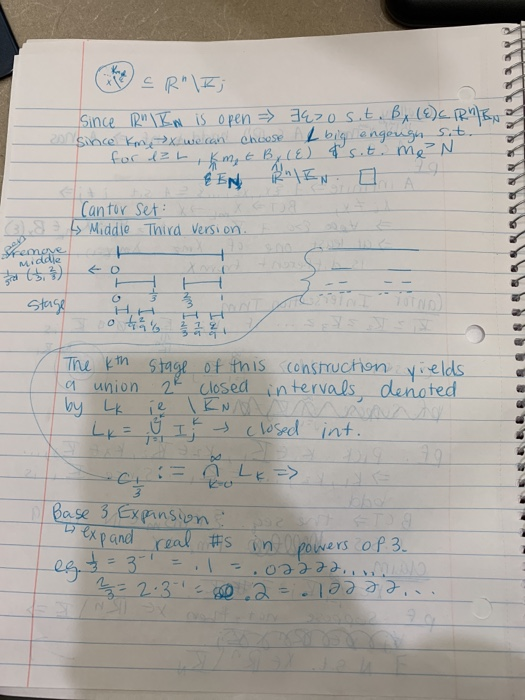 x ⊆ ℝⁿ \ K_j
Since ℝⁿ\K_N is open ⇒ ∃ε>0 s.t. B_x(ε) ⊆ ℝⁿ\K_N
Since K_{m_ℓ}→x we can choose L big engeugh s.t.
for ℓ≥L, K_{m_ℓ} ∈ B_x(ε) & s.t. m_ℓ > N
∈ K_N ℝⁿ\K_N. □
Cantor Set:
↳ Middle Third Version.
remove
middle
1/3rd (1/3, 2/3)
← 0 1
0 1/3 2/3 1
Stage
0 1/9 2/9 1/3 2/3 7/9 8/9 1
The kth Stage of this construction yields
a union 2^k closed intervals, denoted
by L_k ie \K_N
L_k = ⋃_{j=1}^{2^k} I_j^k → closed int.
C_{1/3} := ⋂_{k=0}^∞ L_k ⇒
Base 3 Expansion:
↳ expand real #s in powers of 3.
e.g. 1/3 = 3⁻¹ = .1 = .02222.....
2/3 = 2·3⁻¹ = .2 = .12222...